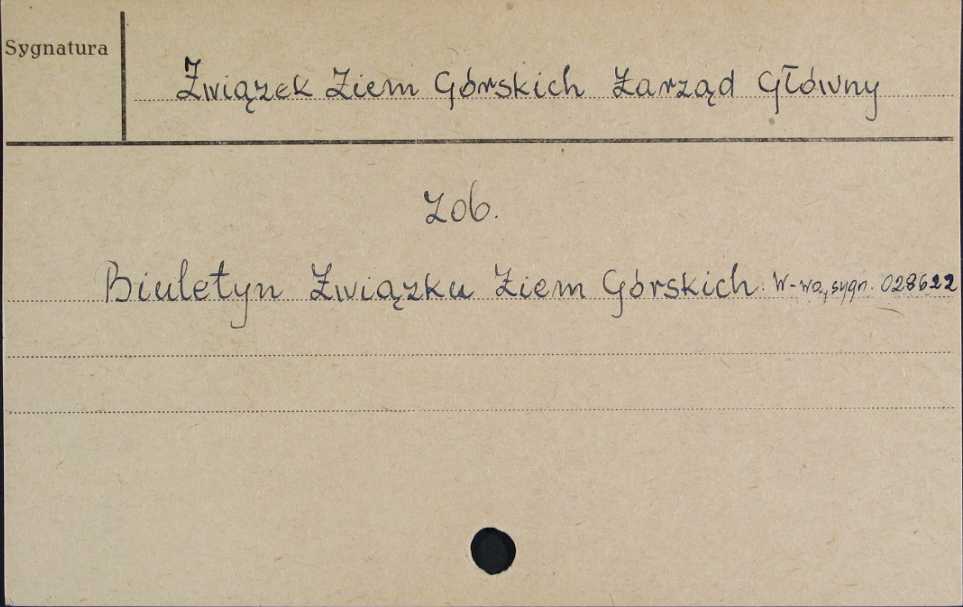 Sygnatura
Związek Ziem Górskich Zarząd Główny
Zob.
Biuletyn Związku Ziem Górskich. W-wa, sygn. 028622